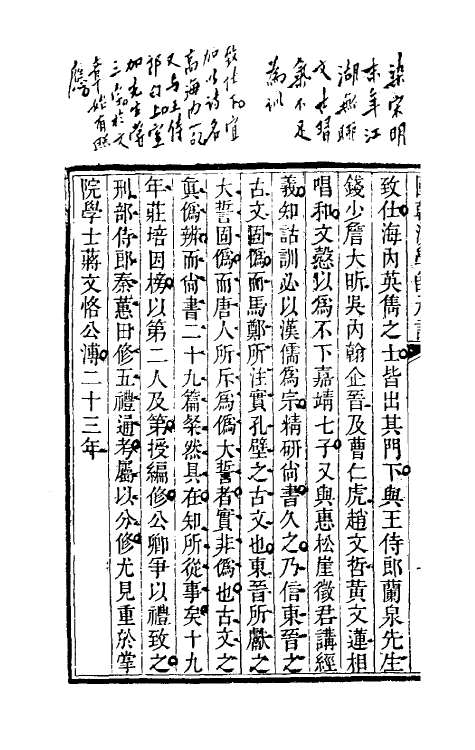 染宋明
末年江
湖無聊
文士習
氣不足
為訓
致仕下宜
加以詩名
高海內一
又与王侍
郎句上宜
加先生嘗
三字於文
章始有照
應
致仕海內英雋之士皆出其門下與王侍郎蘭泉先生
錢少詹大昕吳內翰企晉及曹仁虎趙文哲黃文蓮相
唱和文愨以爲不下嘉靖七子又與惠松崖徵君講經
義知詁訓必以漢儒爲宗精研尙書久之乃信東晉之
古文固僞而馬鄭所注實孔壁之古文也東晉所獻之
大誓固僞而唐人所斥爲僞大誓者實非僞也古文之
眞僞辨而尙書二十九篇粲然具在知所從事矣十九
年莊培因榜以第二人及第授編修公卿爭以禮致之
刑部侍郎秦蕙田修五禮通考屬以分修尤見重於掌
院學士蔣文恪公溥二十三年